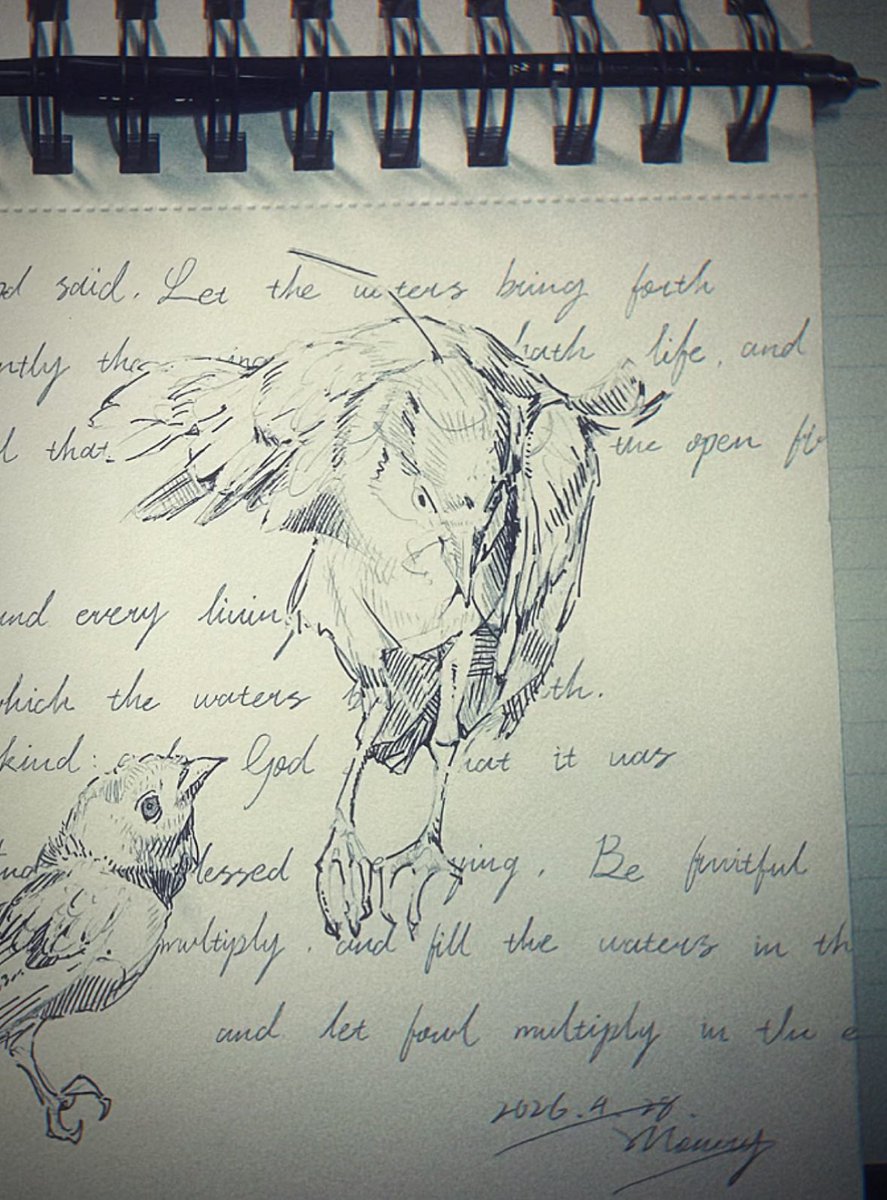 said. Let the waters bring forth
hath life, and
that the open
and every living
which the waters
kind: God that it was
blessed saying. Be fruitful
multiply. and fill the waters in
and let fowl multiply in the
2026.4.28.